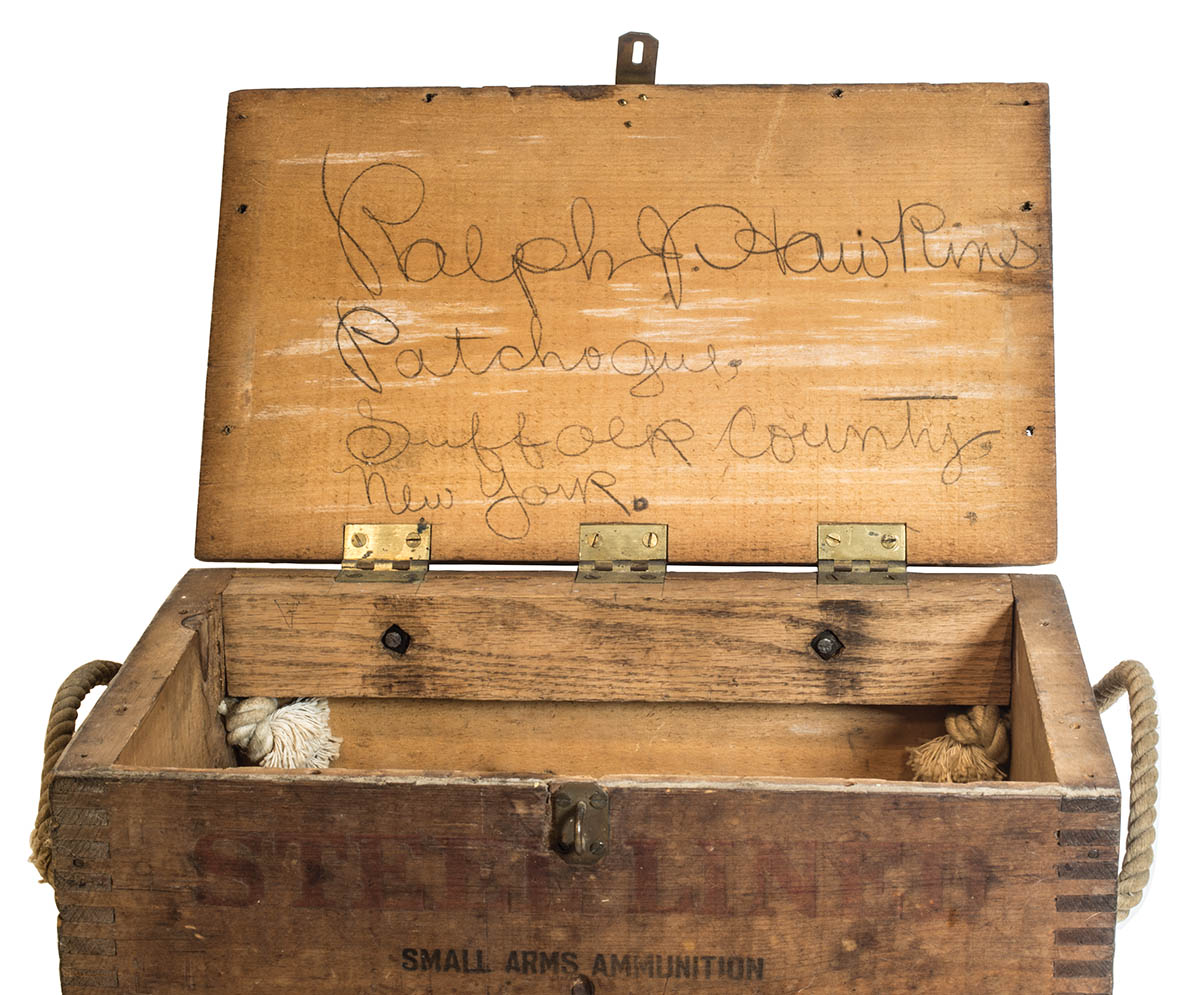 Ralph J. Hawkins
Patchogue.
Suffolk County.
New York.
STEEL LINED
SMALL ARMS AMMUNITION